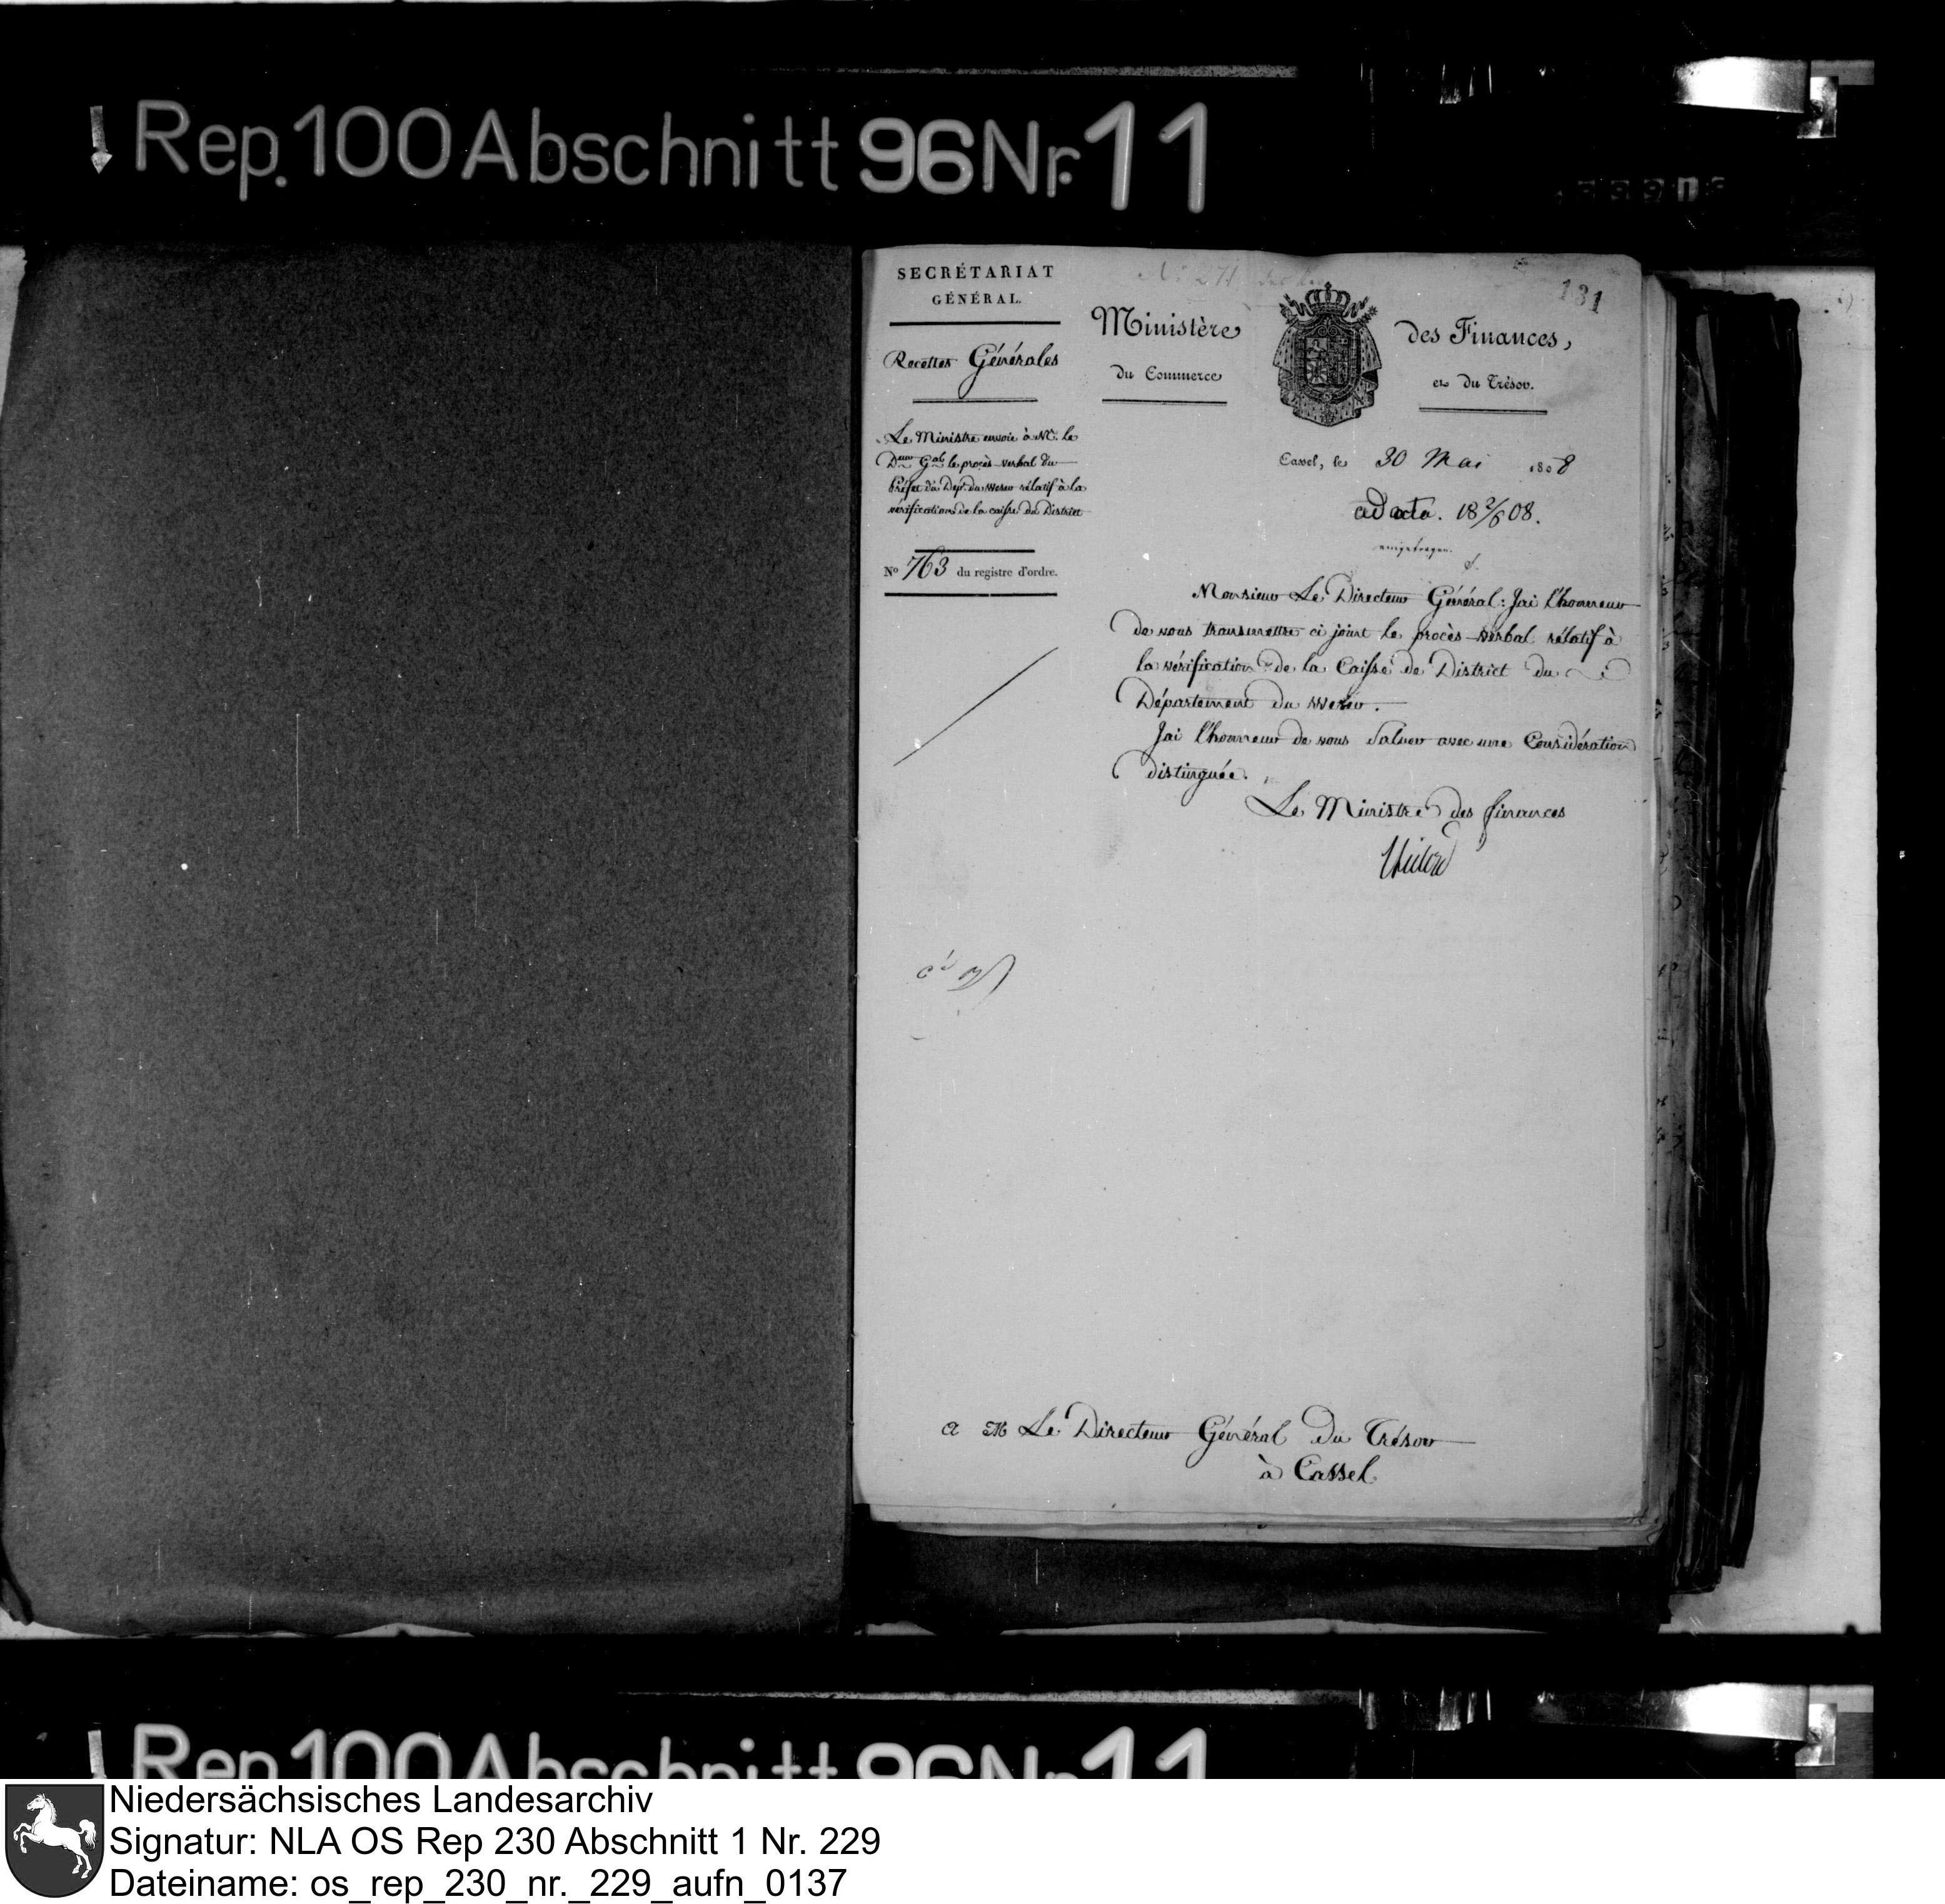 Rep. 100 Abschnitt 96 Nr. 11
SECRÉTARIAT
GÉNÉRAL.
Recettes Générales
Le Ministre envoie à Mr. le
Deur Gal le procès-verbal du
Préfet du Dépt. du Weser rélatif à la
vérification de la caisse du District
No 763 du registre d'ordre.
131
Ministère des Finances,
du Commerce et du Trésor.
Cassel, le 30 Mai 1808
ad acta. 18 2/6 08.
eingetragen.
Monsieur Le Directeur Général: Jai l'honneur
de vous transmettre ci joint le procès-verbal rélatif à
la vérification de la Caisse de District du
Département du Weser.
Jai l'honneur de vous Saluer avec une Considération
distinguée.
Le Ministre des finances
a M Le Directeur Général du Trésor
à Cassel.
Rep. 100 Abschnitt 96 Nr. 11
Niedersächsisches Landesarchiv
Signatur: NLA OS Rep 230 Abschnitt 1 Nr. 229
Dateiname: os_rep_230_nr._229_aufn_0137